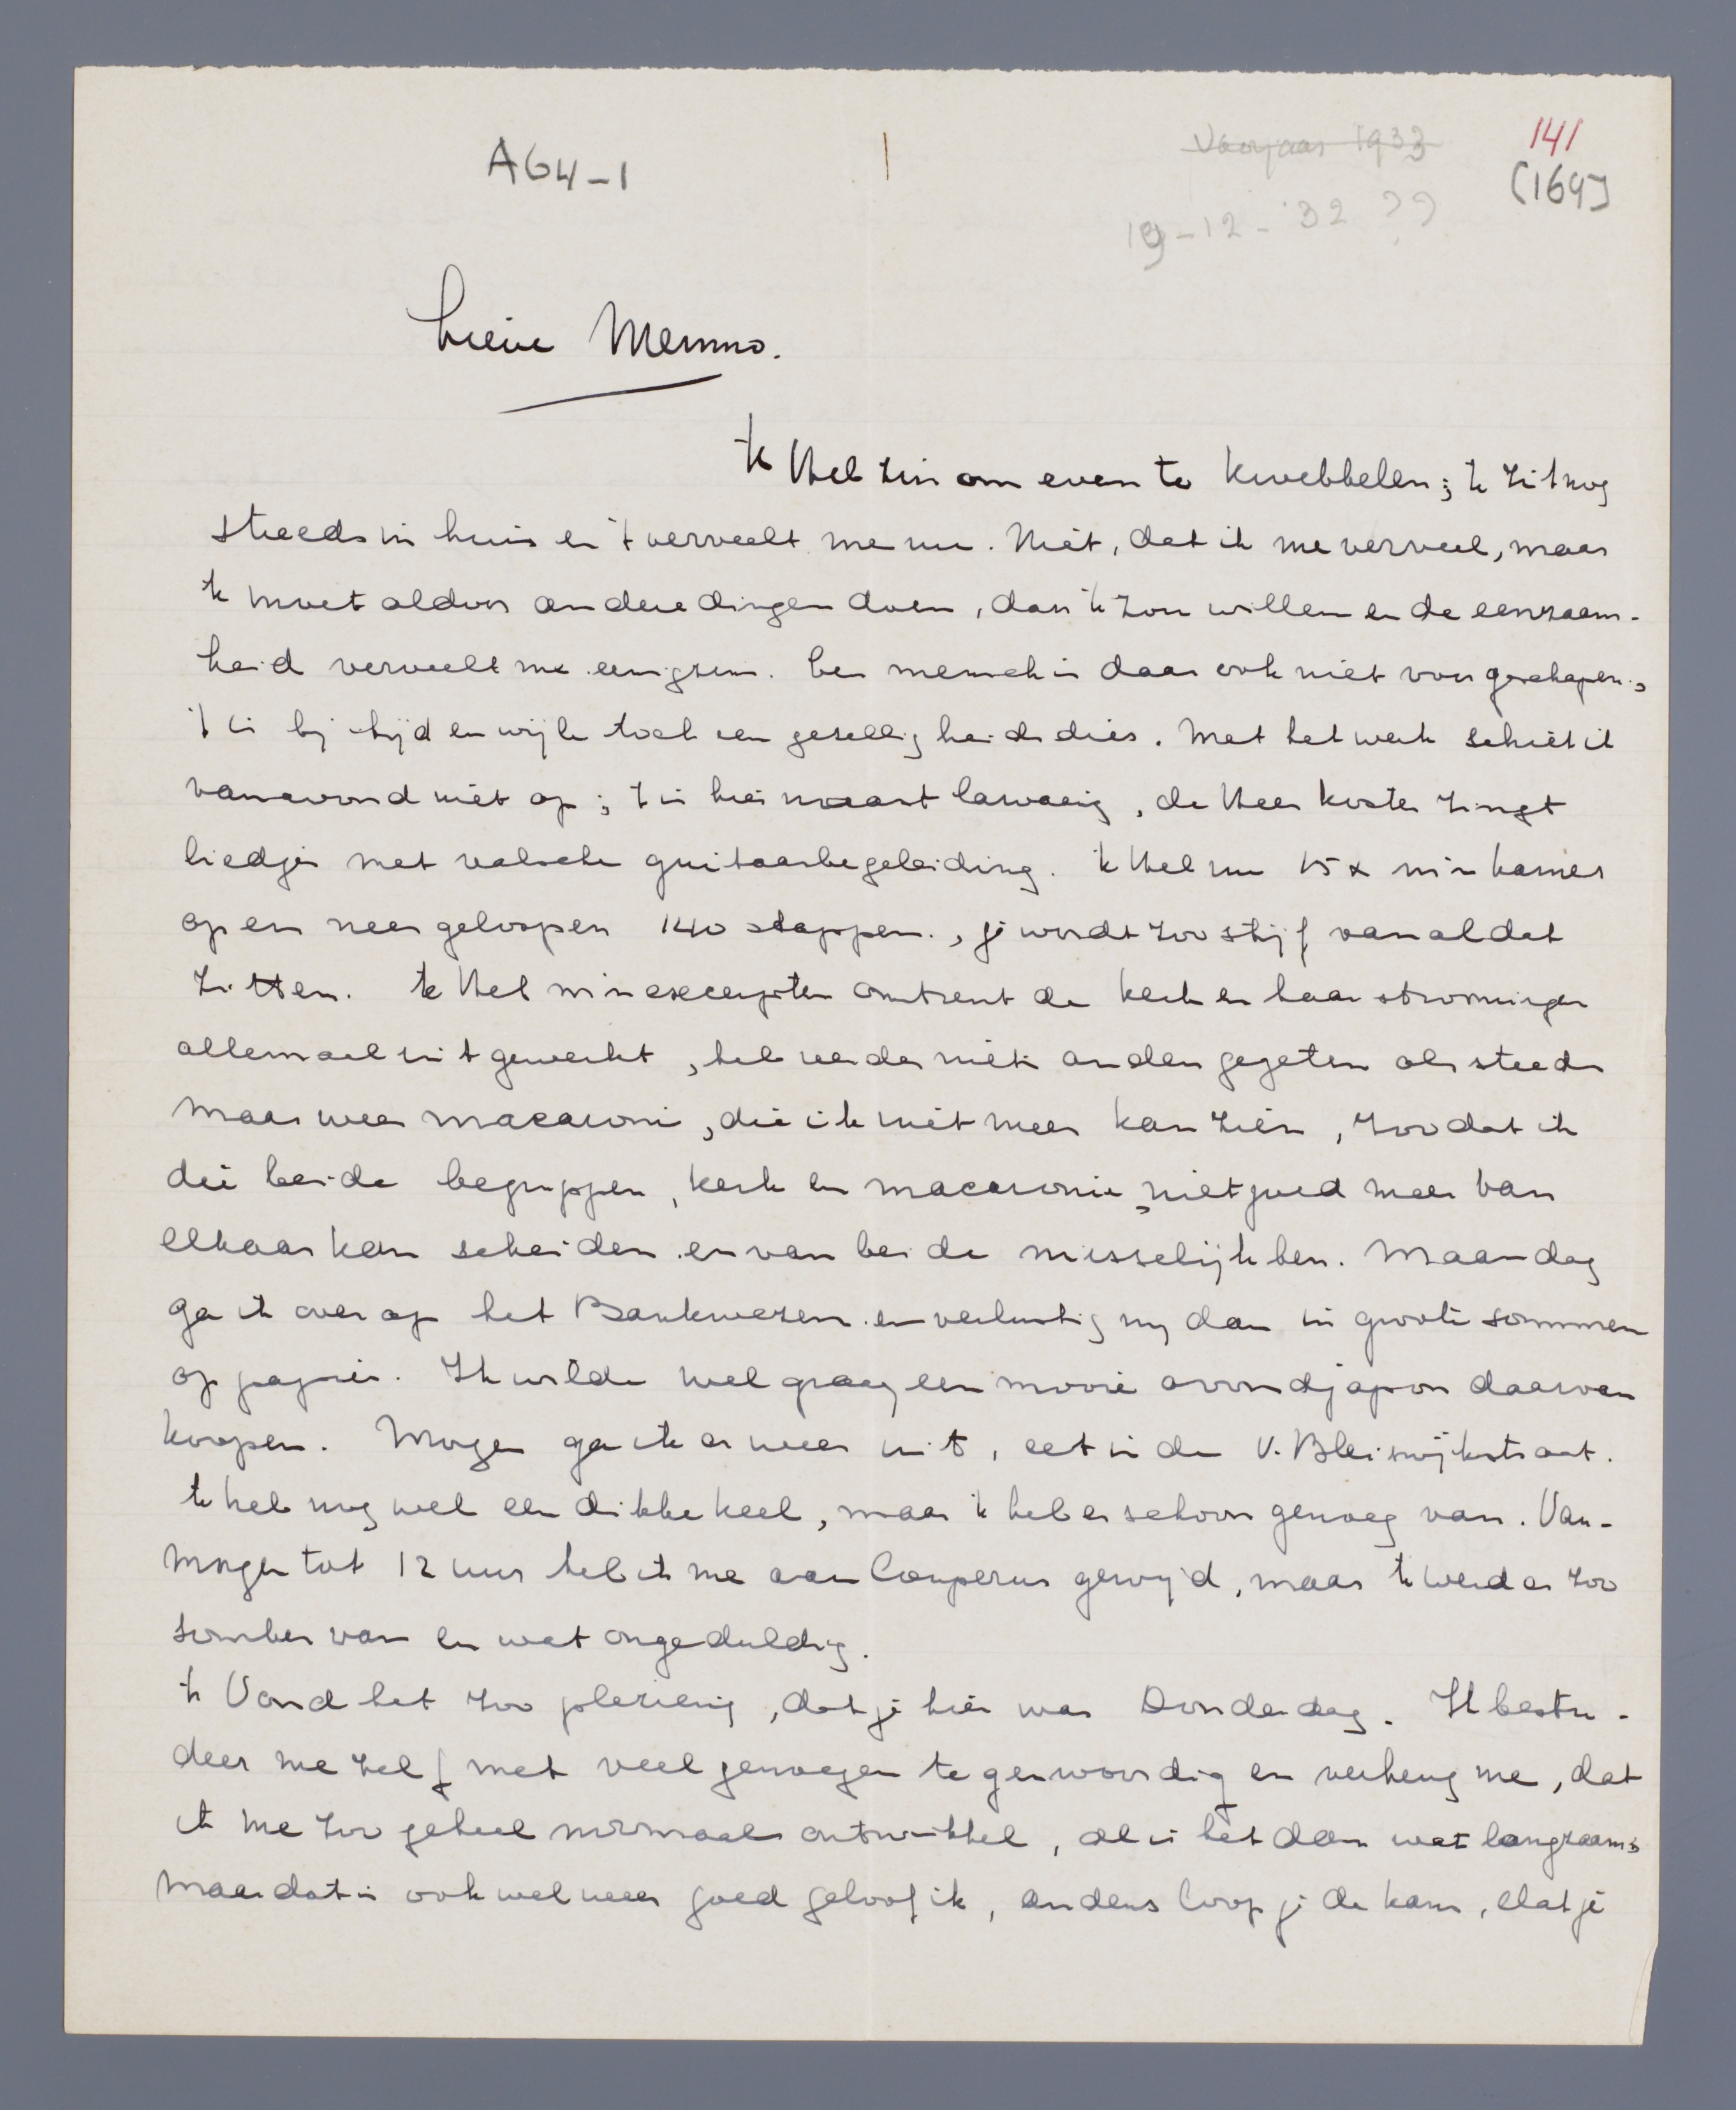 A64-1
Voorjaar 1933
141
(169)
19-12-'32 ??
Lieve Menno.
'k Heb zin om even te kwebbelen; 'k zit nog
steeds in huis en 't verveelt me nu. Niet, dat ik me verveel, maar
'k moet aldoor andere dingen doen, dan 'k zou willen en de eenzaam-
heid verveelt me eenigszins. Een mensch is daar ook niet voor geschapen;
't is bij tijd en wijle toch een gezelligheidsdier. Met het werk schiet ik
vanavond niet op; 't is hier naast lawaaiig, de Heer Koster zingt
liedjes met valsche guitaarbegeleiding. 'k Heb nu 15 x m'n kamer
op en neer geloopen 140 stappen., je wordt zoo stijf van al dat
zitten. 'k Heb m'n excerpten omtrent de kerk en haar stroomingen
allemaal uitgewerkt, heb verder niets anders gegeten als steeds
maar weer macaroni, die ik niet meer kan zien, zoodat ik
die beide begrippen, kerk en macaronie, niet goed meer van
elkaar kan scheiden en van beide misselijk ben. Maandag
ga ik over op het Bankwezen en verlustig mij dan in groote sommen
op papier. Ik wilde wel graag een mooie avondjapon daarvan
koopen. Morgen ga ik er weer uit, eet in de V. Bleiswijkstraat.
'k heb nog wel een dikke keel, maar 'k heb er schoon genoeg van. Van-
morgen tot 12 uur heb ik me aan Couperus gewijd, maar 'k werd er zoo
somber van en wat ongeduldig.
'k Vond het zoo plezierig, dat je hier was Donderdag. Ik bestu-
deer me zelf met veel genoegen tegenwoordig en verheug me, dat
ik me zoo geheel normaal ontwikkel, al is het dan wat langzaam;
maar dat is ook wel weer goed geloof ik, anders loop je de kans, dat je